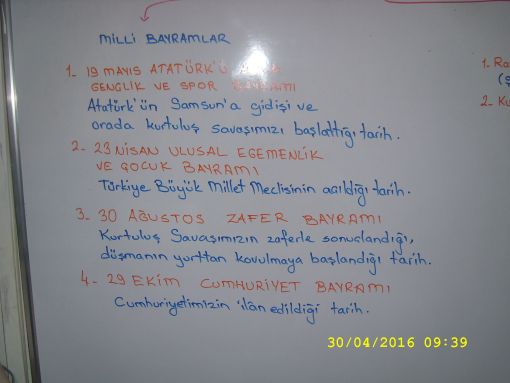 MİLLİ BAYRAMLAR
1- 19 MAYIS ATATÜRK'Ü
GENÇLİK VE SPOR BAYRAMI
Atatürk'ün Samsun'a gidişi ve
orada kurtuluş savaşımızı başlattığı tarih.
2- 23 NİSAN ULUSAL EGEMENLİK
VE ÇOCUK BAYRAMI
Türkiye Büyük Millet Meclisinin açıldığı tarih.
3- 30 AĞUSTOS ZAFER BAYRAMI
Kurtuluş Savaşımızın zaferle sonuçlandığı,
düşmanın yurttan kovulmaya başlandığı tarih.
4- 29 EKİM CUMHURİYET BAYRAMI
Cumhuriyetimizin ilân edildiği tarih.
1- Ra
(ş
2- Ku
30/04/2016 09:39